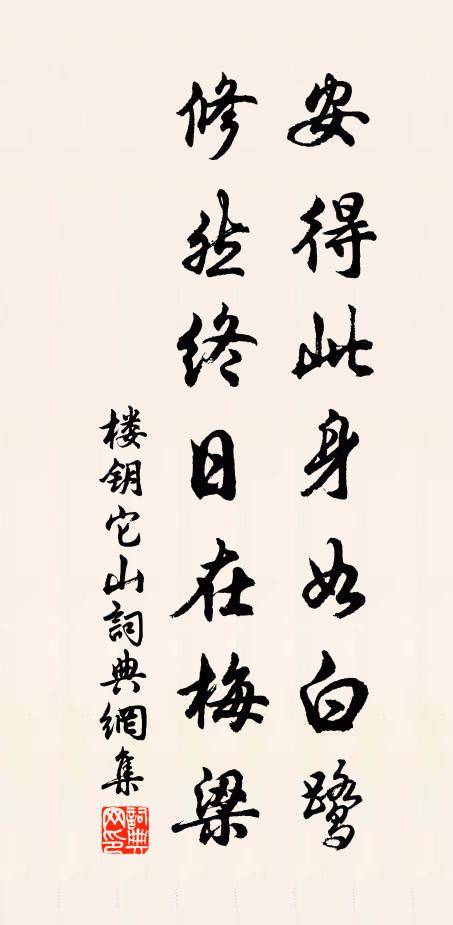 安得此身如白鷺
修然終日在梅梁
楼钥它山詞典網集
詞典网印